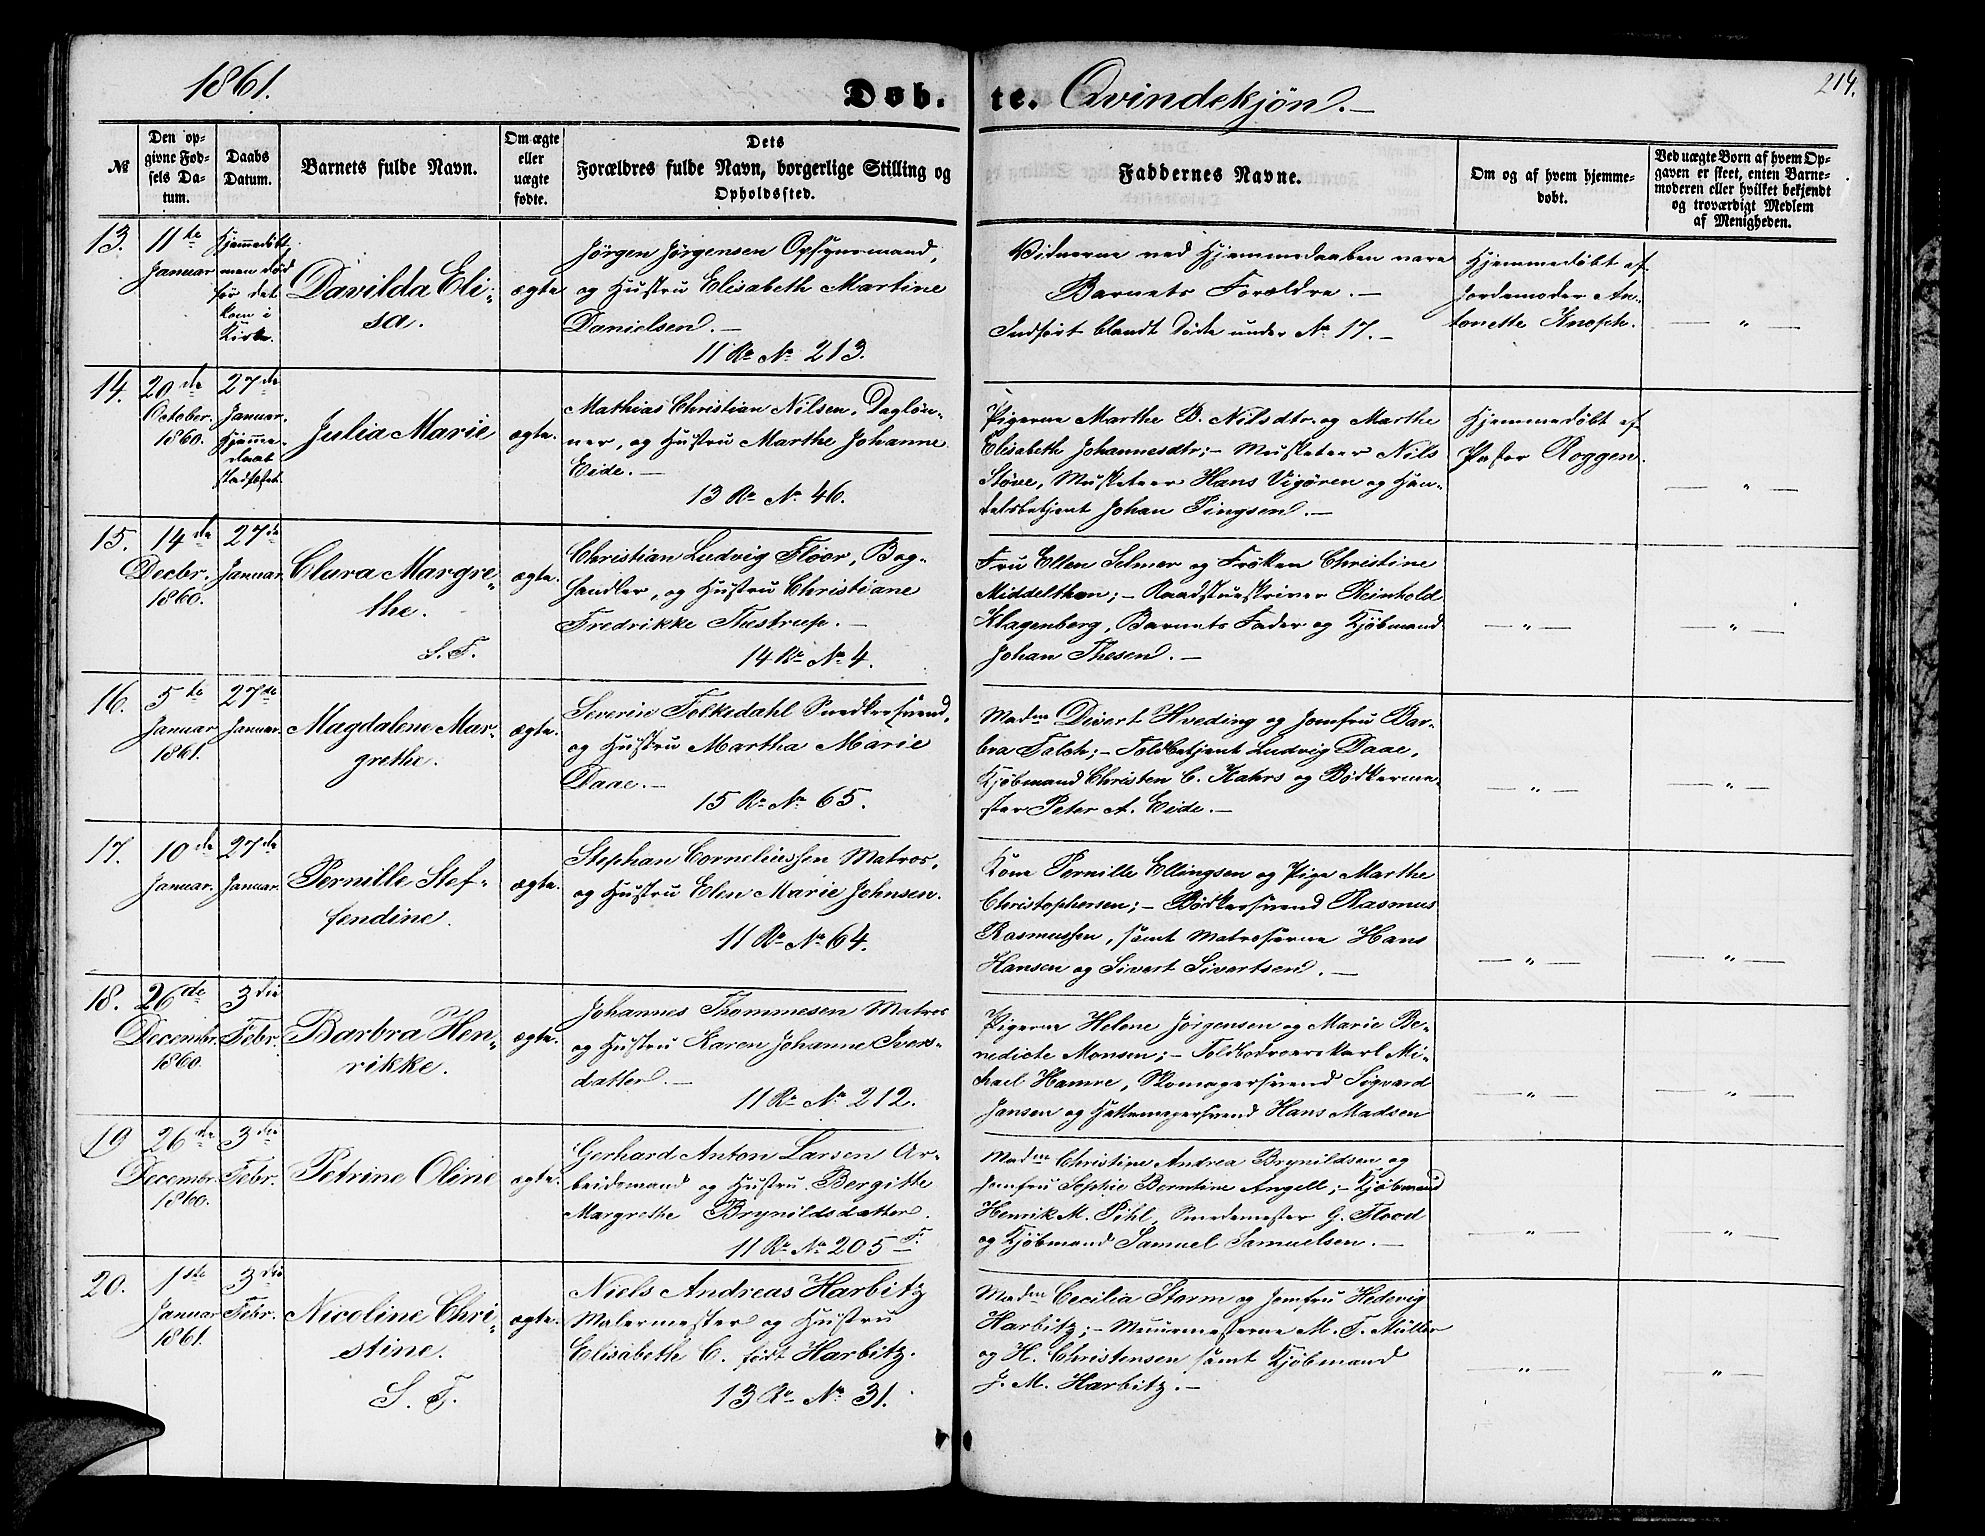 1861.
Døb. te. Qvindekjön.—
214.
№
Den op-
givne Fød-
sels Da-
tum.
Daabs
Datum.
Barnets fulde Navn.
Om ægte
eller
uægte
fødte.
Dets
Forældres fulde Navn, borgerlige Stilling og
Opholdssted.
Faddernes Navne.
Om og af hvem hjemme-
døbt.
Ved uægte Børn af hvem Op-
gaven er skeet, enten Barne-
moderen eller hvilket bekjendt
og troværdigt Medlem
af Menigheden.
13.
11te
Januar
Hjemmedöbt
men död
för det
kom i
Kirke.
Davilda Eli-
sa.
ægte
Jörgen Jörgensen Opsynsmand,
og Hustru Elisabeth Martine
Danielsen.—
11 Ro No 213.
Vidnerne ved Hjemmedaaben vare
Barnets Forældre.—
Indfört blandt Döde under No 17.—
Hjemmedöbt af
Jordemoder An-
tonette Knoph.
— " —
14.
20de
October.
1860.
27de
Januar.
Hjemme-
daab
stadfæstet.
Julia Marie
ægte.
Mathias Christian Nilsen, Daglön-
ner, og Hustru Marthe Johanne
Eide.—
13 Ro No 46.
Pigerne Marthe B. Nilsdtr. og Marthe
Elisabeth Johannesdtr;— Musketeer Nils
Stöve, Musketeer Hans Vigören og Han-
delsbetjent Johan Pingsen.—
Hjemmedöbt af
Pastor Roggen.
— " —
15.
14de
Decbr.
1860.
27de
Januar.
Clara Margre-
the.
S. F.
ægte.
Christian Ludvig Floor, Bog-
handler, og Hustru Christiane
Fredrikke Thestrup.—
14 Ro No 4.
Fru Ellen Selmer og Fröken Christine
Middelthon;— Raadstueskriver Reinhold
Klagenberg, Barnets Fader og Kjöbmand
Johan Thesen.—
— " —
— " —
16.
5te
Januar
1861.
27de
Januar.
Magdalene Mar-
grethe.
ægte.
Severin Folkedahl Snedkersvend,
og Hustru Martha Marie
Daae.—
15 Ro No 65.
Madm Divert Hveding og Jomfru Bar-
bra Falch;— Toldbetjent Ludvig Daae,
Kjöbmand Christen C. Kahrs og Bödkerme-
ster Peter A. Eide.—
— " —
— " —
17.
10de
Januar.
27de
Januar.
Pernille Stef-
fendine.
ægte.
Stephan Corneliussen Matros,
og Hustru Elen Marie Johnsen.
11 Ro No 64.
Kone Pernille Ellingsen og Pige Marthe
Christophersen;— Bödkersvend Rasmus
Rasmussen, samt Matroserne Hans
Hansen og Sivert Sivertsen.—
— " —
— " —
18.
26de
Decembr.
1860.
3die
Febr.
Barbra Hen-
rikke.
ægte.
Johannes Thommesen Matros
og Hustru Karen Johanne Ivers-
datter.—
11 Ro No 212.
Pigerne Helene Jörgensen og Marie Be-
nedicte Monsen;— Toldbodroerskarl Mi-
chael Hamre, Skomagersvend Sigvard
Jansen og Hattemagersvend Hans Madsen
— " —
— " —
19
26de
Decembr.
1860.
3die
Febr.
Petrine Oline
ægte.
Gerhard Anton Larsen Ar-
beidsmand og Hustru Bergitte
Margrethe Brynildsdatter.
11 Ro No 205 F.
Madm Christine Andrea Brynildsen og
Jomfru Sophie Berntine Angell;— Kjöbmand
Henrik M. Pihl, Smedemester G. Flood
og Kjöbmand Samuel Samuelsen.—
— " —
— " —
20.
1ste
Januar
1861.
3die
Febr.
Nicoline Chri-
stine.
S. F.
ægte.
Niels Andreas Harbitz
Malermester og Hustru
Elisabeth C. født Harbitz.
13 Ro No 31.
Madm Cecilia Storm og Jomfru Hedevig
Harbitz;— Muurmesterne M. F. Müller
og H. Christensen samt Kjöbmand
J. M. Harbitz.—
— " —
— " —